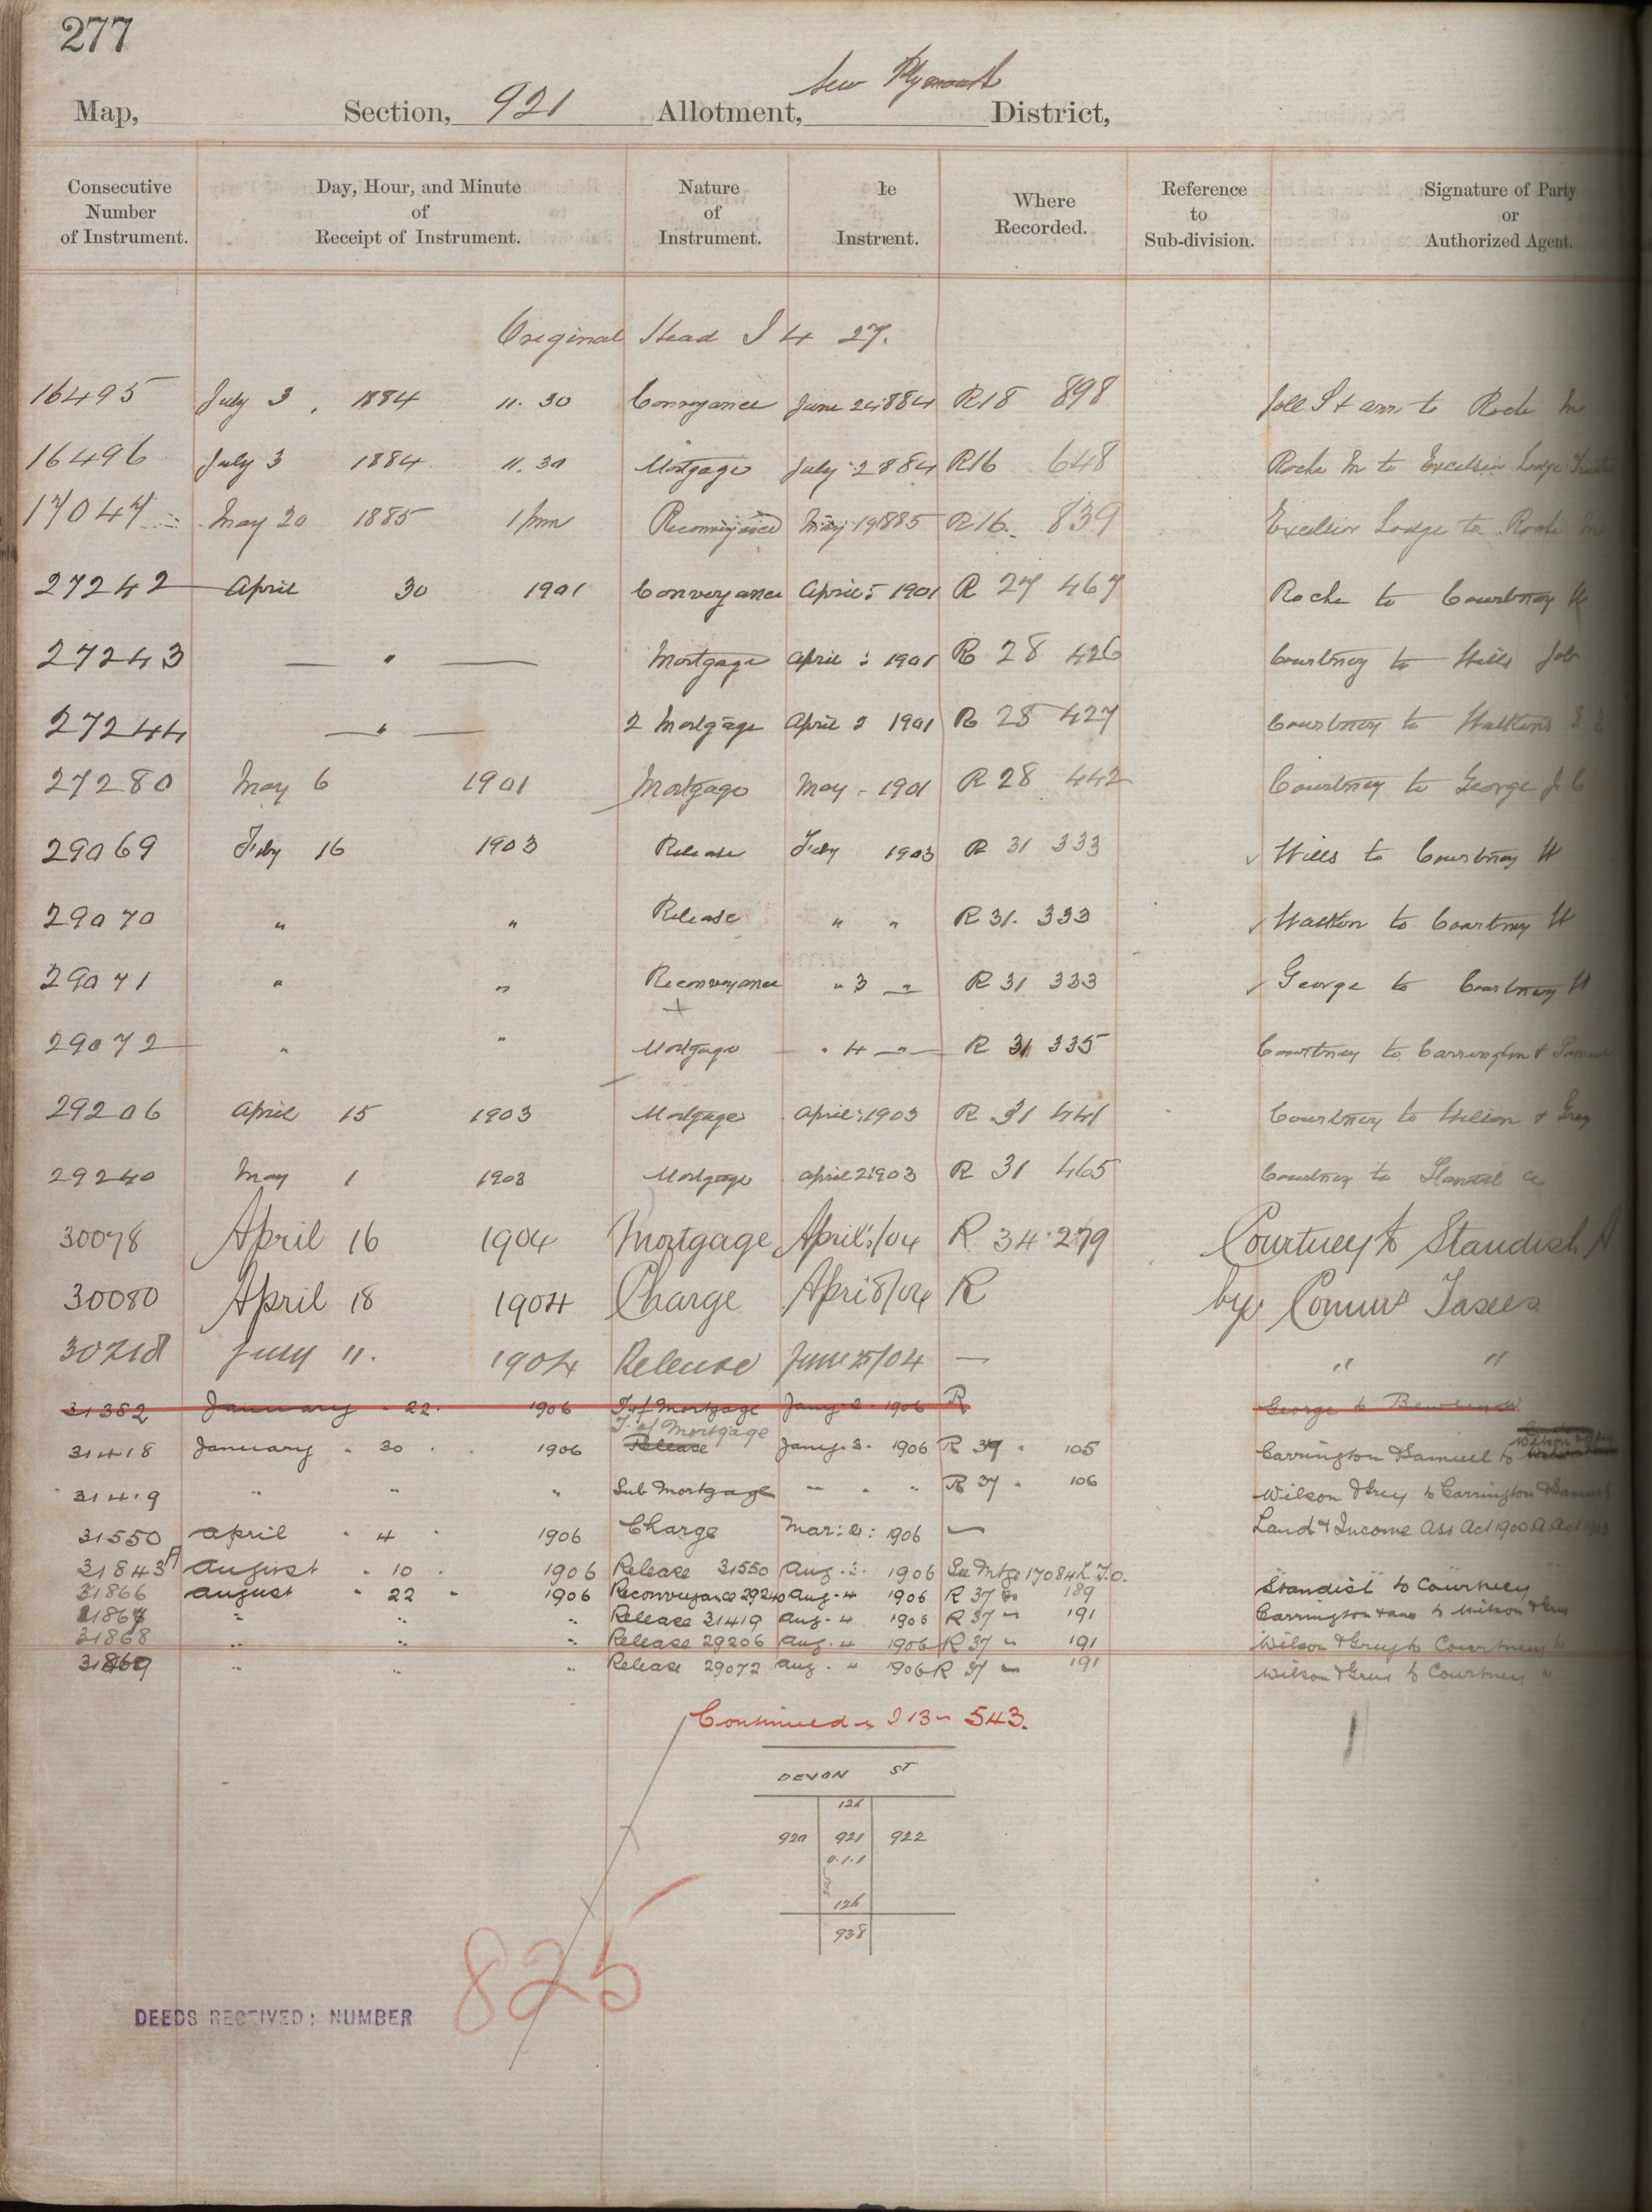 277
New Plymouth
Map, Section, 921 Allotment, District,
Consecutive Number of Instrument. Day, Hour, and Minute of Receipt of Instrument. Nature of Instrument. Where Recorded. Reference to Sub-division. Signature of Party or Authorized Agent.
Original Head I 4 27.
16495 July 3, 1884 11.30 Conveyance June 24 1884 R18 898 to Roche
16496 July 3 1884 11.30 Mortgage July 2 884 R16 648 Roche M to Excelsior Lodge
17047 May 20 1885 1 pm Reconveyance May 19 1885 R16. 839 Excelsior Lodge to Roche
27242 April 30 1901 Conveyance April 1901 R 27 467 Roche to Courtney W
27243 — " — Mortgage April 1901 R 28 426 Courtney to Job
27244 — " — 2 Mortgage April 2 1901 R 28 427 Courtney to
27280 May 6 1901 Mortgage May 1901 R 28 442 Courtney to George J C
29069 Feby 16 1903 Release Feby 1903 R 31 333 to Courtney W
29070 " " Release " " R 31. 333 to Courtney W
29071 " " Reconveyance " 3 " R 31 333 George to Courtney W
29072 " " Mortgage " 4 " R 31 335 Courtney to Carrington &
29206 April 15 1903 Mortgage April 1903 R 31 441 Courtney to Wilson & Grey
29240 May 1 1903 Mortgage April 21 1903 R 31 465 Courtney to
30078 April 16 1904 Mortgage April /04 R 34 279 Courtney to Standish A
30080 April 18 1904 Charge April 8/04 R by Commr Taxes
July 11. 1904 Release June 25/04 — " "
31382 January 22. 1906 T. of Mortgage Jany. 2. 1906 R George to
T. of Mortgage
31418 January 30 1906 Release Jany. 3. 1906 R 105 Carrington & Samuel to
31419 " " " Sub Mortgage " " R 37 106 Wilson & Grey to Carrington & Samuel
31550 April 4 1906 Charge Mar: 1906 — Land & Income Ass Act 1900
31843A August 10 1906 Release 31550 Aug. 1906 See Mtge 17084
31866 August 22 1906 Reconveyance 29240 Aug. 4 1906 R 37 189 Standish to Courtney
31867 " " " Release 31419 Aug. 4 1906 R 37 191 Carrington & to Wilson & Grey
31868 " " " Release 29206 Aug. 4 1906 R 37 191 Wilson & Grey to Courtney
31869 " " " Release 29072 Aug. " 1906 R 37 191 Wilson & Grey to Courtney
Continued in I 13 543.
DEVON ST
126
920 921 922
0.1.1
126
938
825
DEEDS RECEIVED: NUMBER